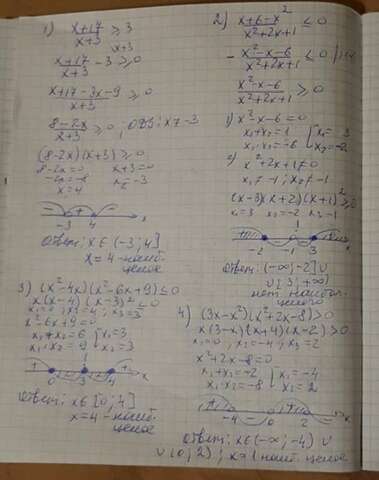 1) (x+17)/(x+3) ≥ 3
x+3
(x+17)/(x+3) - 3 ≥ 0
(x+17-3x-9)/(x+3) ≥ 0
(8-2x)/(x+3) ≥ 0
(8-2x)(x+3) ≥ 0
8-2x=0 x+3=0
-2x=-8
x=4
-3 4 x
Ответ: x∈(-3; 4]
x=4 - наиб. целое
2) (x+6-x²)/(x²+2x+1) ≤ 0
- (x²-x-6)/(x²+2x+1) ≤ 0
(x²-x-6)/(x²+2x+1) ≥ 0
1) x²-x-6=0
x₁+x₂=1 x₁=3
x₁·x₂=-6 x₂=-2
x²+2x+1≠0
x≠-1
(x-3)(x+2)(x+1)² ≥ 0
x₁=3 x₂=-2
-2 -1 3
Ответ: (-∞; -2] ∪
∪ [3; +∞)
нет наибол.
целого
3) (x²-4x)(x²-6x+9) ≤ 0
x(x-4)(x-3)² ≤ 0
x₁=0; x₂=4; x₃=3
x²-6x+9=0
x₁+x₂=6 x₁=3
x₁·x₂=9 x₂=3
0 3 4 x
Ответ: x∈[0; 4]
x=4 - наиб. целое
4) (3x-x²)(x²+2x-8) > 0
x(3-x)(x+4)(x-2) > 0
x₁=0, x₂=-4; x₃=2
x²+2x-8=0
x₁+x₂=-2 x₁=-4
x₁·x₂=-8 x₂=2
-4 0 2 x
Ответ: x∈(-∞; -4) ∪
∪ (0; 2); x=1 наиб. целое